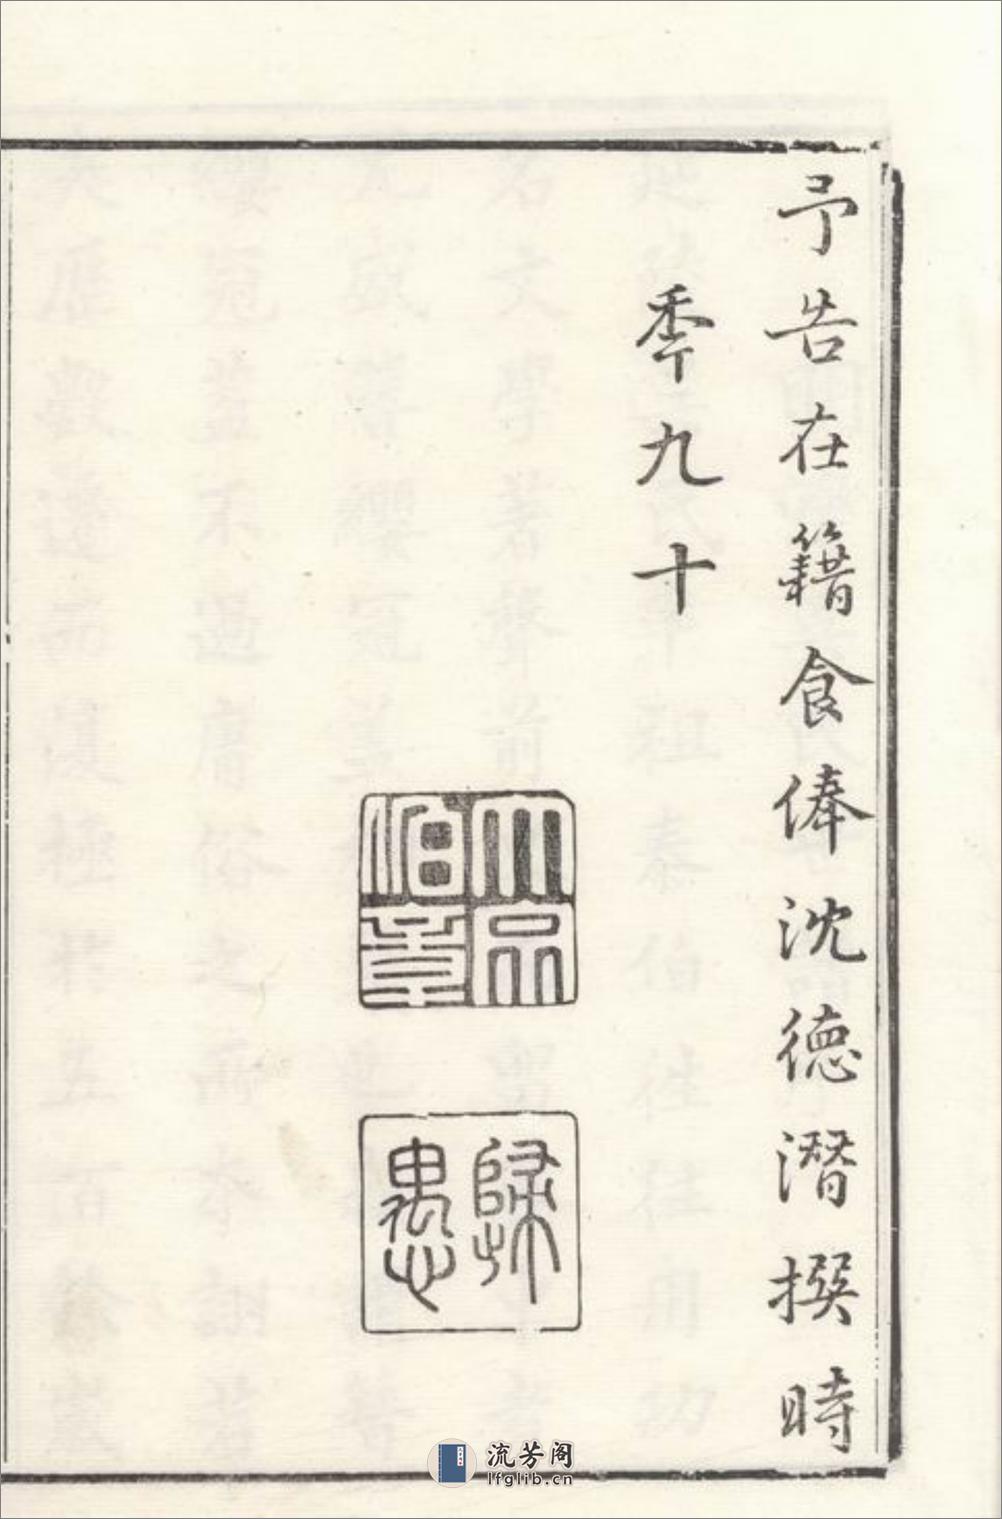 予告在籍食俸沈德潜撰時
秊九十
大宗伯章
歸愚
流芳阁
lfglib.cn